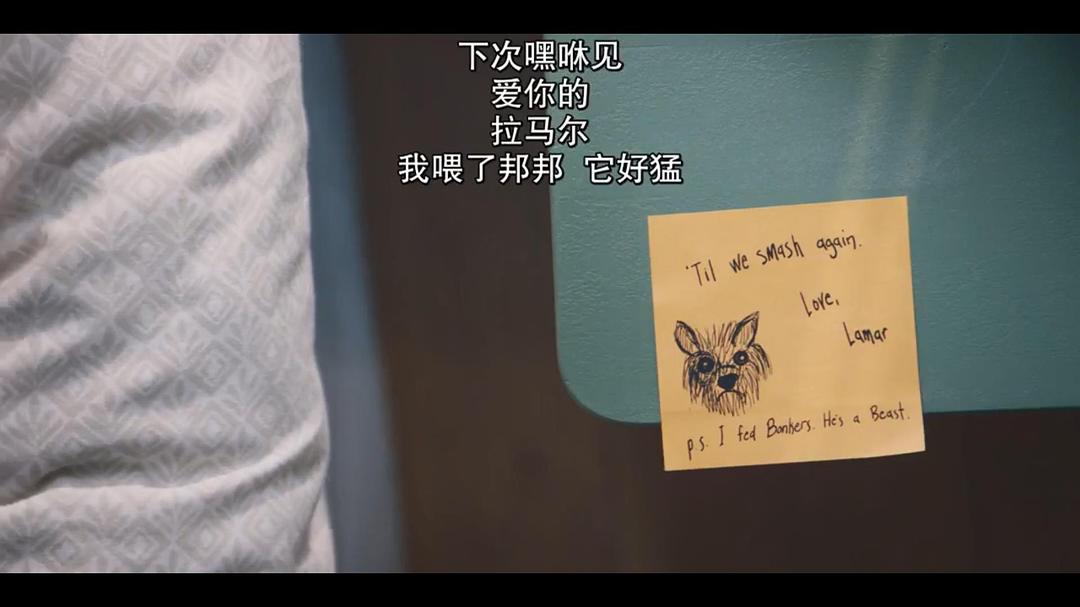 下次嘿咻见
爱你的
拉马尔
我喂了邦邦 它好猛
'Til we smash again.
Love,
Lamar
p.s. I fed Bonkers. He's a Beast.